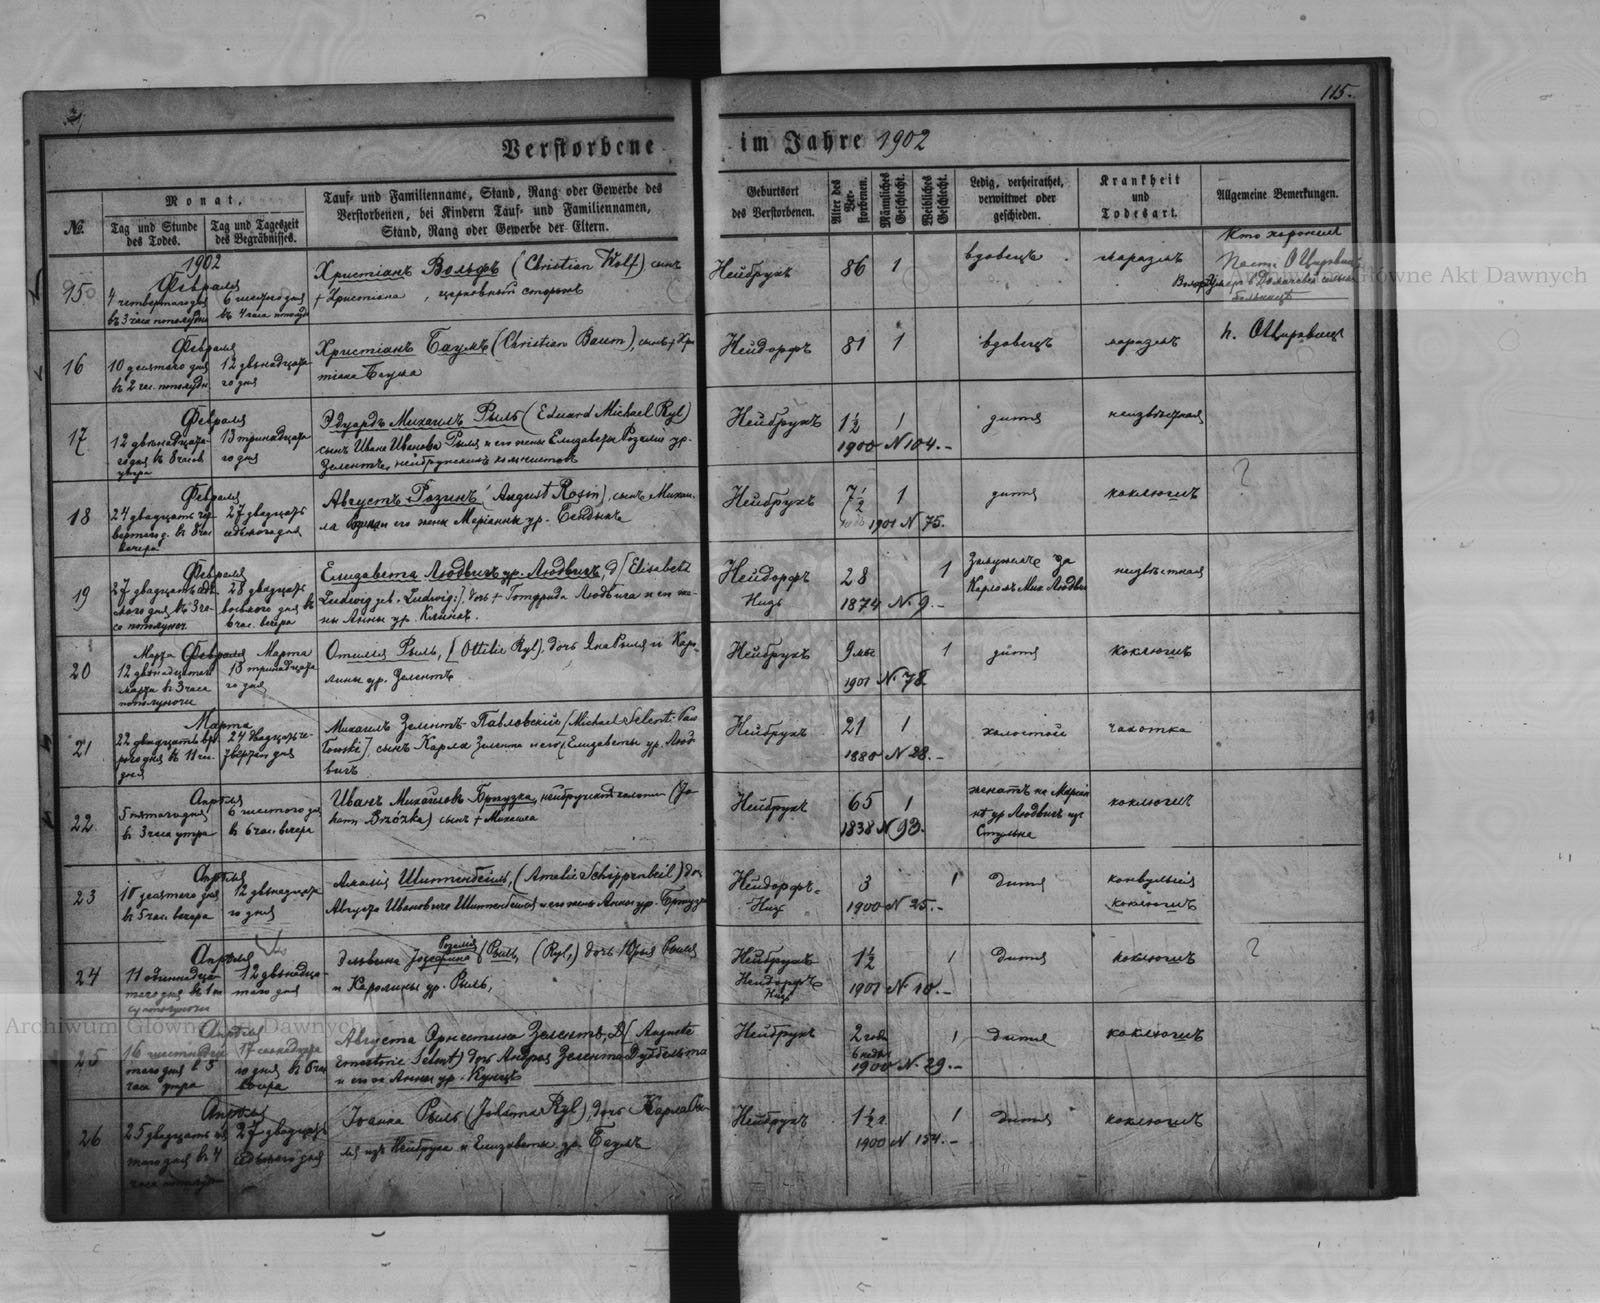 115.
Verstorbene im Jahre 1902
№
Monat,
Tag und Stunde des Todes.
Tag und Tageszeit des Begräbnisses.
Tauf- und Familienname, Stand, Rang oder Gewerbe des
Verstorbenen, bei Kindern Tauf- und Familiennamen,
Stand, Rang oder Gewerbe der Eltern.
Geburtsort
des Verstorbenen.
Alter des Verstorbenen.
Männliches Geschlecht.
Weibliches Geschlecht.
Ledig, verheirathet,
verwittwet oder
geschieden.
Krankheit
und
Todesart.
Allgemeine Bemerkungen.
1902
Февраля
15
4 четвертаго дня
въ 3 часа пополудни
6 шестого дня
въ 4 часа пополудн
Христіанъ Вольфъ (Christian Wolf) сынъ
† Христіана, церковный сторожъ
Нейбрухъ
86
1
вдовецъ
маразмъ
Кто хоронилъ
больницѣ
Февраля
16
10 десятаго дня
въ 2 час. пополудн
12 двѣнадцата
го дня
Христіанъ Баумъ (Christian Baum), сынъ † Хри
тіана Баума
Нейдорфъ
81
1
вдовецъ
маразмъ
Февраля
17
12 двѣнадцата
го дня въ 8 часовъ
утра
13 тринадцата
го дня
Эдуардъ Михаилъ Рыль (Eduard Michael Ryl)
сынъ Ивана Иванова Рыля и его жены Елизаветы Розаліи ур.
Зелентъ, нейбрухскихъ колонистовъ
Нейбрухъ
1½
1
1900 N 104.-
дитя
неизвѣстная
Февраля
18
24 двадцать чет
вертаго д. въ 8 час
вечера
27 двадцать
седьмого дня
Августъ Розинъ (August Rosin), сынъ Михаи
ла и его жены Маріанны ур.
Нейбрухъ
7½
1
1901 N 75.
дитя
коклюшъ
?
Февраля
19
27 двадцать седь
мого дня въ 3 ча
са пополуноч.
28 двадцать
восьмого дня въ
6 час. вечера
Елизавета Людвигъ ур. Людвигъ, (Elisabeth
Ludwig geb. Ludwig), дочь † Готфрида Людвига и его же
ны Анны ур.
Нейдорфъ
28
1
1874 N. 9.-
Замужемъ за
Карломъ Мих. Людвиг
неизвѣстная
Марта Февраля Марта
20
12 двѣнадцатаго
марта въ 3 часа
пополуночи
13 тринадцата
го дня
Отилія Рыль, (Ottilie Ryl) дочь Яна Рыля и Каро
лины ур. Зелентъ
Нейбрухъ
9 мѣс
1
1901 N. 78
дитя
коклюшъ
Марта
21
22 двадцать вто
рого дня въ 11 ч.
дня
24 двадцать че
твертаго дня
Михаилъ Зелентъ-Павловскій (Michael Selent-Paw
lowski), сынъ Карла Зелента и его Елизаветы ур. Люд
вигъ
Нейбрухъ
21
1
1880 N 28.-
холостой
чахотка
Апрѣля
22
5 пятаго дня
въ 3 часа утра
6 шестого дня
въ 6 час. вечера
Иванъ Михайловъ Бржузка, нейбрухскій колонис (Jo
hann Brzózka) сынъ † Михаила
Нейбрухъ
65
1
1838 N 93.
женатъ на Маріан
нѣ ур. Людвигъ
коклюшъ
Апрѣля
23
10 десятаго дня
въ 5 час. вечера
12 двѣнадцата
го дня
Амалія Шиппенбейль, (Amelie Schippenbeil) доч
Августа Ивановича Шиппенбейля и его жены Анны ур. Бржузка
Нейдорфъ
3
1
1900 N 25.-
Дитя
конвульсія
коклюшъ
Апрѣля
24
11 одиннадца
таго дня въ 1 ч
су пополуночи
12 двѣнадца
таго дня
Розалія
Эльвина Жозефина (Рыль, (Ryl,) дочь Юрія Рыля
и Каролины ур. Рыль,
Нейбрухъ
Нейдорфъ
1½
1
1901 N 10.-
Дитя
коклюшъ
?
Апрѣля
25
16 шестнадца
таго дня въ 5
часа утра
17 семнадцата
го дня въ 6 час
вечера
Августа Эрнестина Зелентъ, (Auguste
Ernestine Selent) дочь Андрея Зелента
и его ж. Анны ур. Кунцъ
Нейбрухъ
2 года
6 недѣль
1
1900 N. 29.-
дитя
коклюшъ
Апрѣля
26
25 двадцать пя
таго дня въ 4
часа пополудн
27 двадцать
седьмого дня
Іоанна Рыль (Johanna Ryl), дочь Карла Ры
ля изъ Нейбруха и Елизаветы ур. Баумъ
Нейбрухъ
1½ г.
1
1900 N 154.-
дитя
коклюшъ
Archiwum Główne Akt Dawnych
Archiwum Główne Akt Dawnych